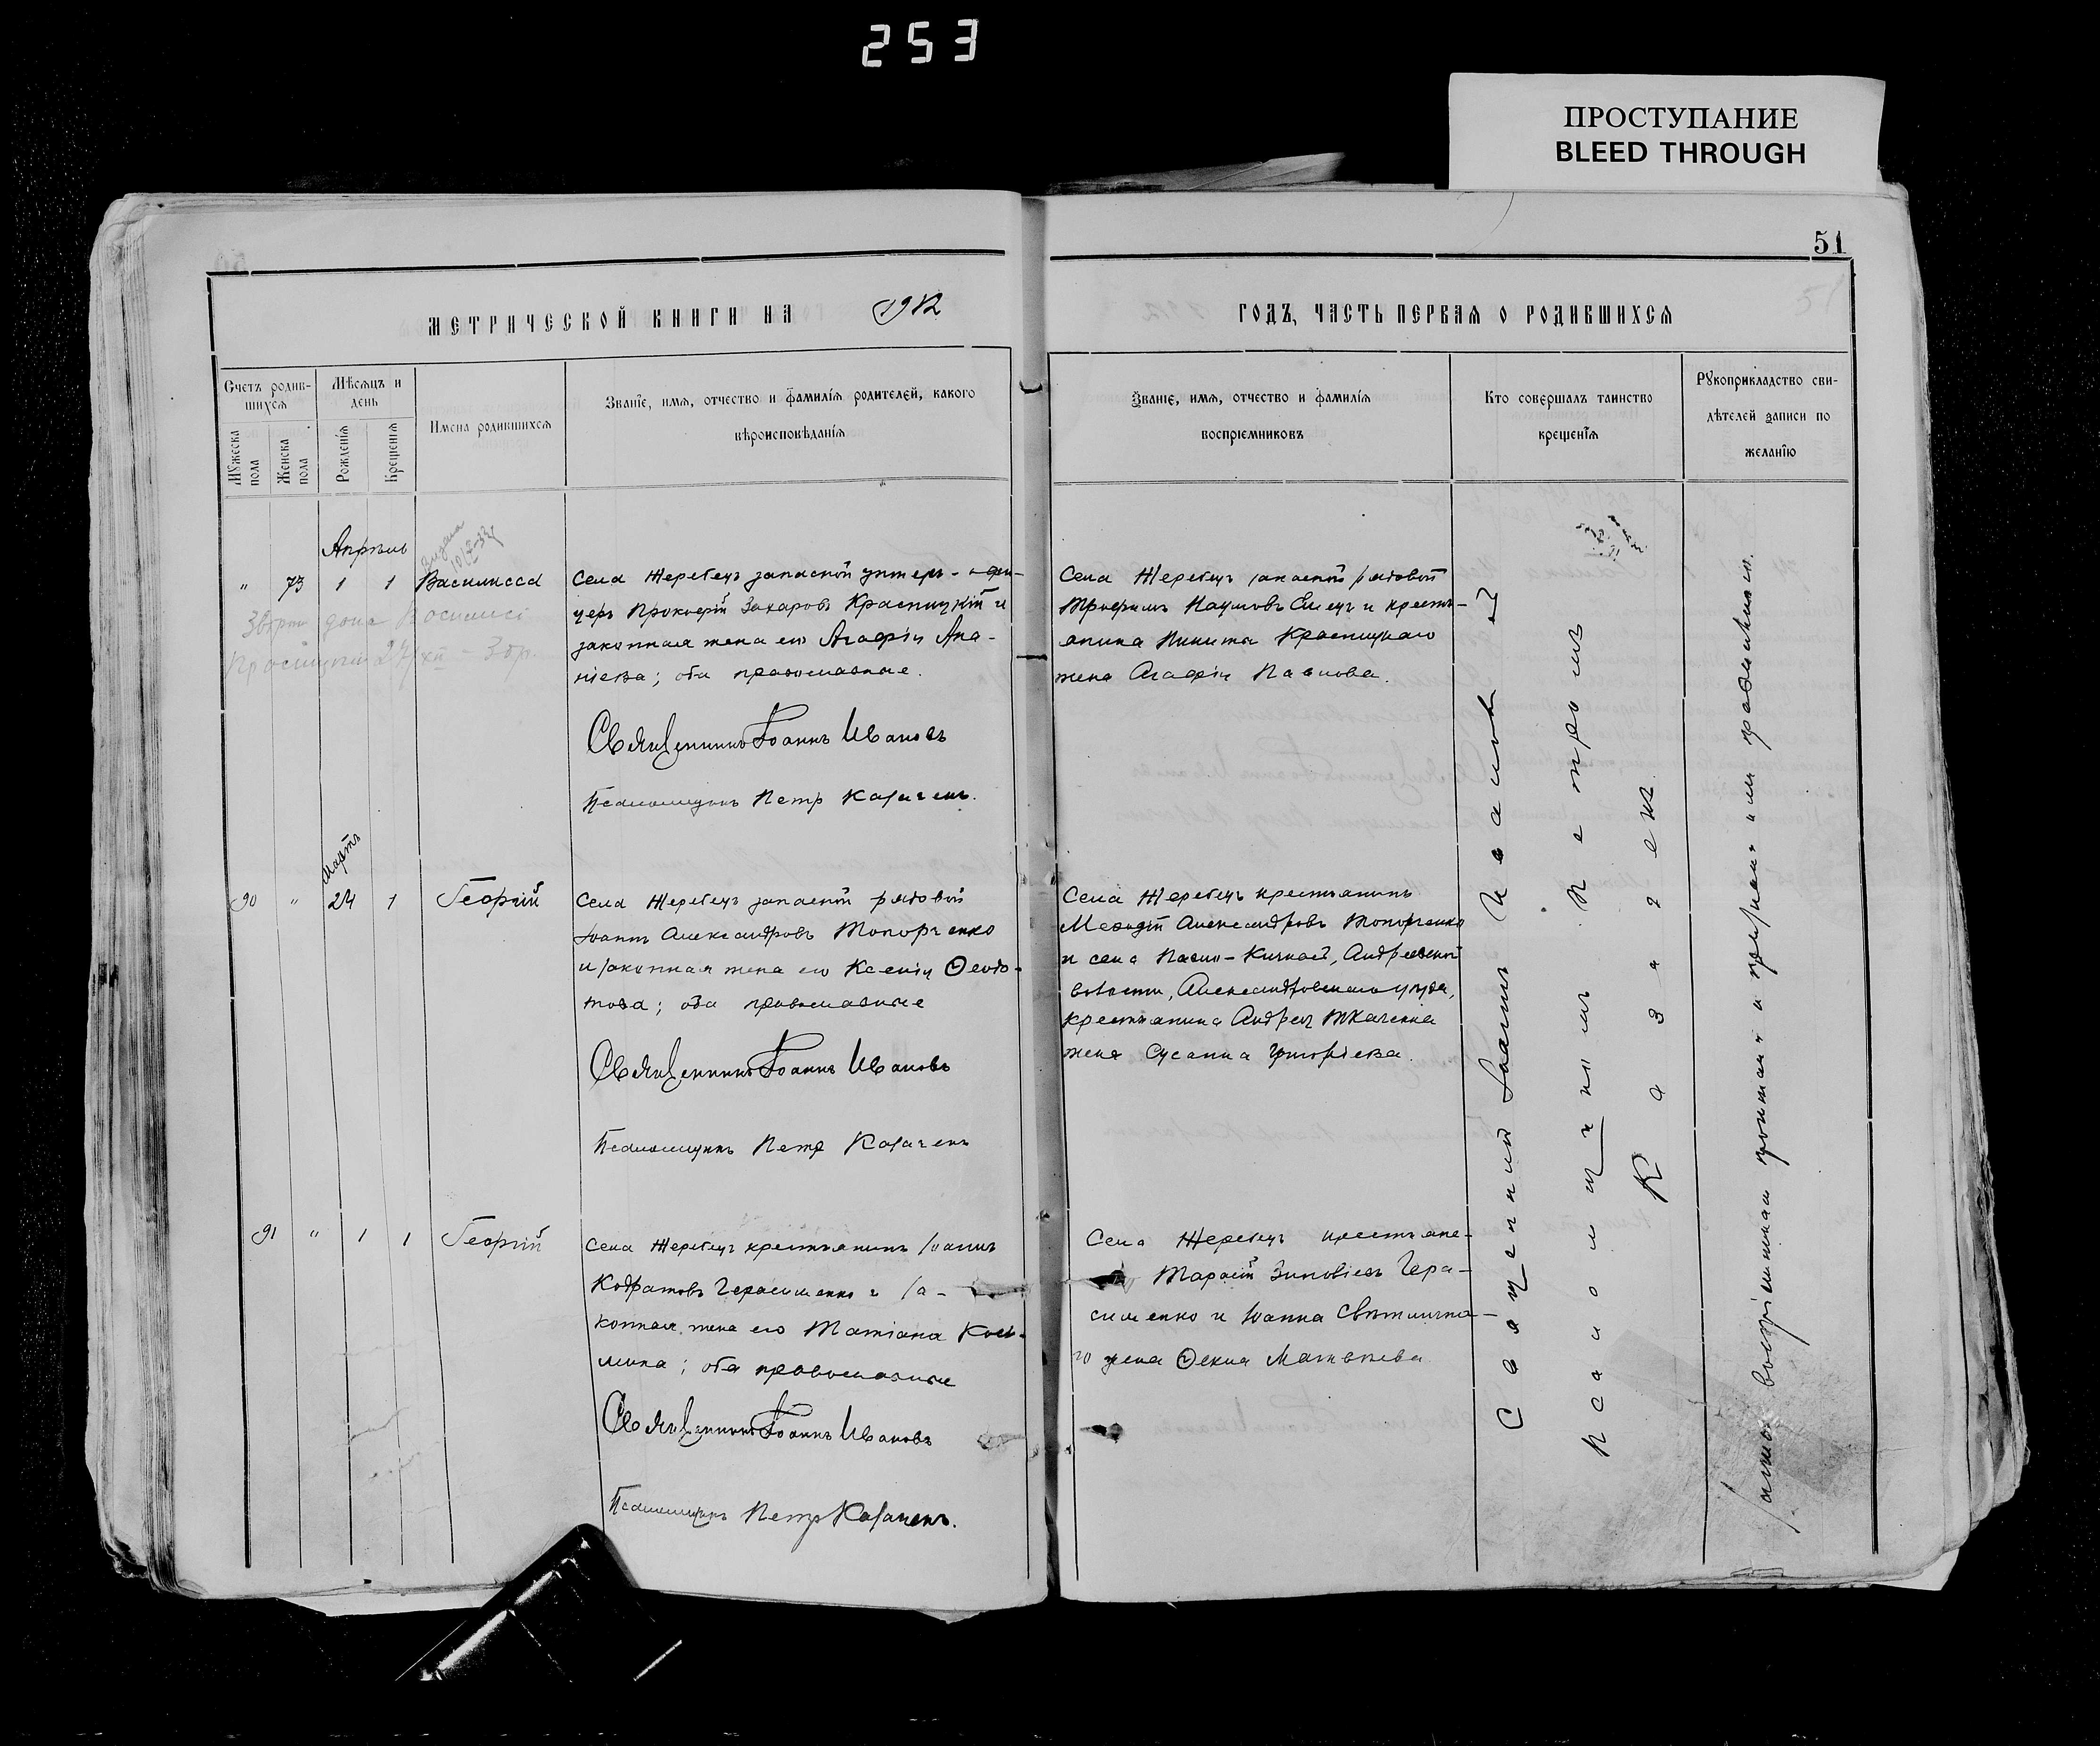 253
ПРОСТУПАНИЕ
BLEED THROUGH
51
МЕТРИЧЕСКОЙ КНИГИ НА 1912
ГОДЪ, ЧАСТЬ ПЕРВАЯ О РОДИВШИХСЯ
Счетъ родив-
шихся
Мужеска пола
Женска пола
Мѣсяцъ и
день
Рожденія
Крещенія
Имена родившихся
Званіе, имя, отчество и фамилія родителей, какого
вѣроисповѣданія
Званіе, имя, отчество и фамилія
воспріемниковъ
Кто совершалъ таинство
крещенія
Рукоприкладство сви-
дѣтелей записи по
желанію
Апрѣль
" 73 1 1 Василисса
Села Жеребецъ запасной унтеръ-офи-
церъ Прокофій Захаровъ Красицкій и
законная жена его Агафія Ана-
ніева; оба православные.
Священникъ Іоаннъ Ивановъ
Псаломщикъ Петръ Казачекъ.
Села Жеребецъ запасной рядовой
Трофимъ Наумовъ Емецъ и кресть-
янина Никиты Красицкаго
жена Агафія Павлова.
Мартъ
90 " 24 1 Георгій
Села Жеребецъ запасной рядовой
Іоаннъ Александровъ Топорченко
и законная жена его Ксенія Ѳеодо-
това; оба православные
Священникъ Іоаннъ Ивановъ
Псаломщикъ Петръ Казачекъ
Села Жеребецъ крестьянинъ
Меѳодій Александровъ Топорченко
и села Павло-Кичкаса, Андреевской
волости, Александровскаго уѣзда,
крестьянина Андрея Ткаченка
жена Сусанна Григоріева.
91 " 1 1 Георгій
Села Жеребецъ крестьянинъ Іоаннъ
Кодратовъ Герасименко и за-
конная жена его Татіана Кось-
мина; оба православные
Священникъ Іоаннъ Ивановъ
Псаломщикъ Петръ Казачекъ.
Села Жеребецъ крестьяне-
Тарасій Зиновіевъ Гера-
сименко и Іоанна Свѣтлична-
го жена Ѳекла Матвѣева
Священникъ Іоаннъ Ивановъ
Псаломщикъ Петръ
Казачекъ